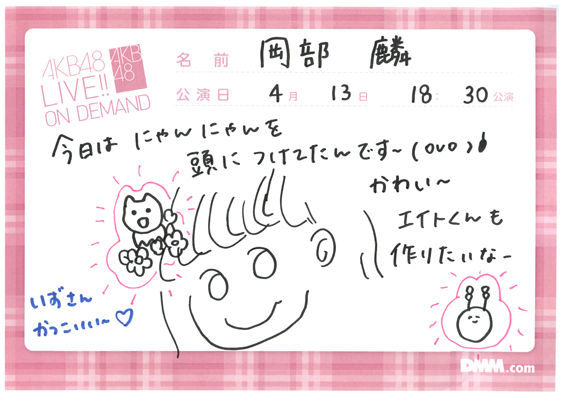 AKB48
LIVE!!
ON DEMAND
AKB
48
名前 岡部 麟
公演日 4月 13日 18:30公演
今日は にゃんにゃんを
頭に つけてたんです〜(OVO)
かわい〜
エイトくんも
作りたいなー
いずさん
かっこいい〜♡
DMM.com